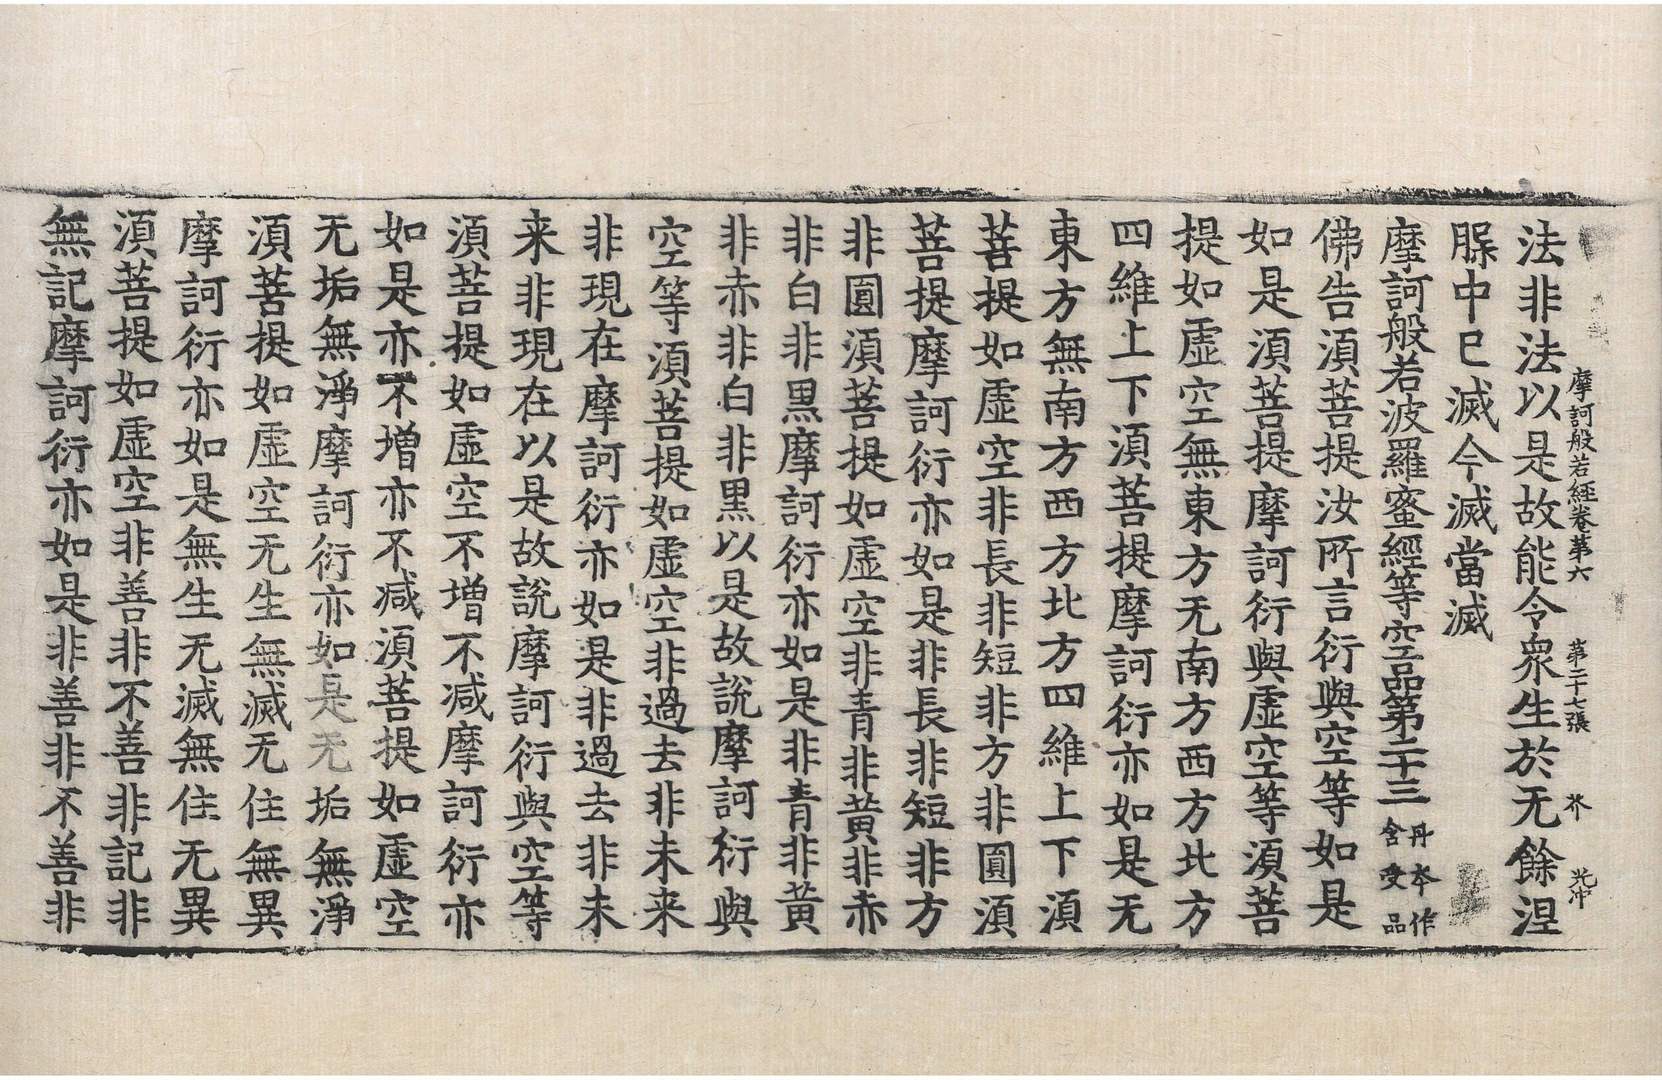 摩訶般若經卷第六 第二十七張 芥 光冲
法非法以是故能令眾生於无餘涅
𦜇中已滅今滅當滅
摩訶般若波羅蜜經等空品第二十三 丹本作含受品
佛告湏菩提汝所言衍與空等如是
如是湏菩提摩訶衍與虛空等湏菩
提如虛空無東方无南方西方北方
四維上下湏菩提摩訶衍亦如是无
東方無南方西方北方四維上下湏
菩提如虛空非長非短非方非圓湏
菩提摩訶衍亦如是非長非短非方
非圓湏菩提如虛空非青非黃非赤
非白非黑摩訶衍亦如是非青非黃
非赤非白非黑以是故說摩訶衍與
空等湏菩提如虛空非過去非未来
非現在摩訶衍亦如是非過去非未
来非現在以是故說摩訶衍與空等
湏菩提如虛空不增不减摩訶衍亦
如是亦不增亦不减湏菩提如虛空
无垢無淨摩訶衍亦如是无垢無淨
湏菩提如虛空无生無滅无住無異
摩訶衍亦如是無生无滅無住无異
湏菩提如虛空非善非不善非記非
無記摩訶衍亦如是非善非不善非